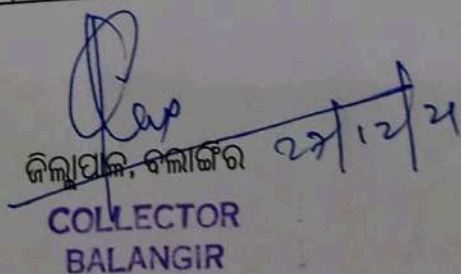 ଜିଲ୍ଲାପାଳ, ବଲାଙ୍ଗିର 27/12/21
COLLECTOR
BALANGIR